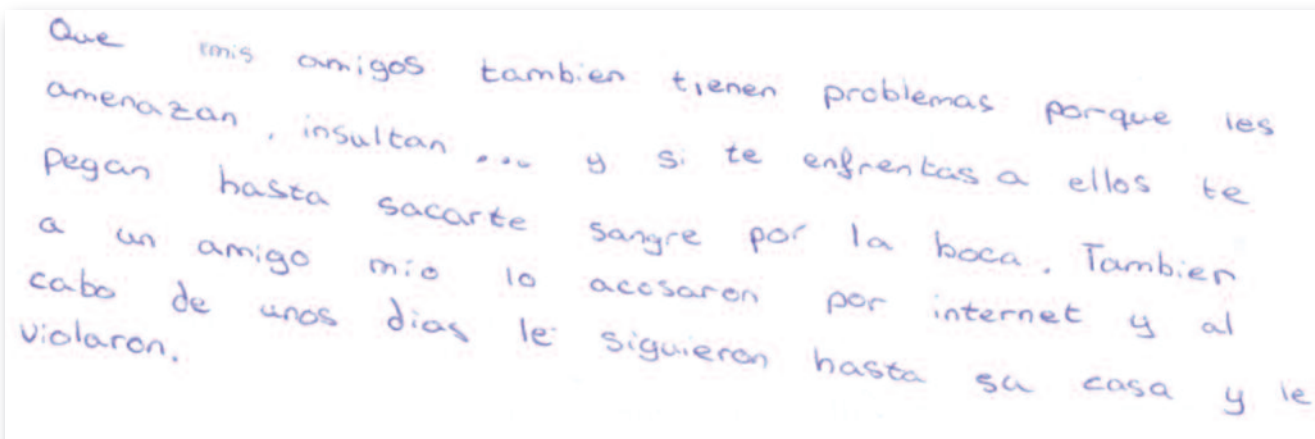 Que mis amigos tambien tienen problemas porque les
amenazan, insultan ... y si te enfrentas a ellos te
pegan hasta sacarte sangre por la boca. Tambien
a un amigo mio lo acosaron por internet y al
cabo de unos dias le siguieron hasta su casa y le
violaron.